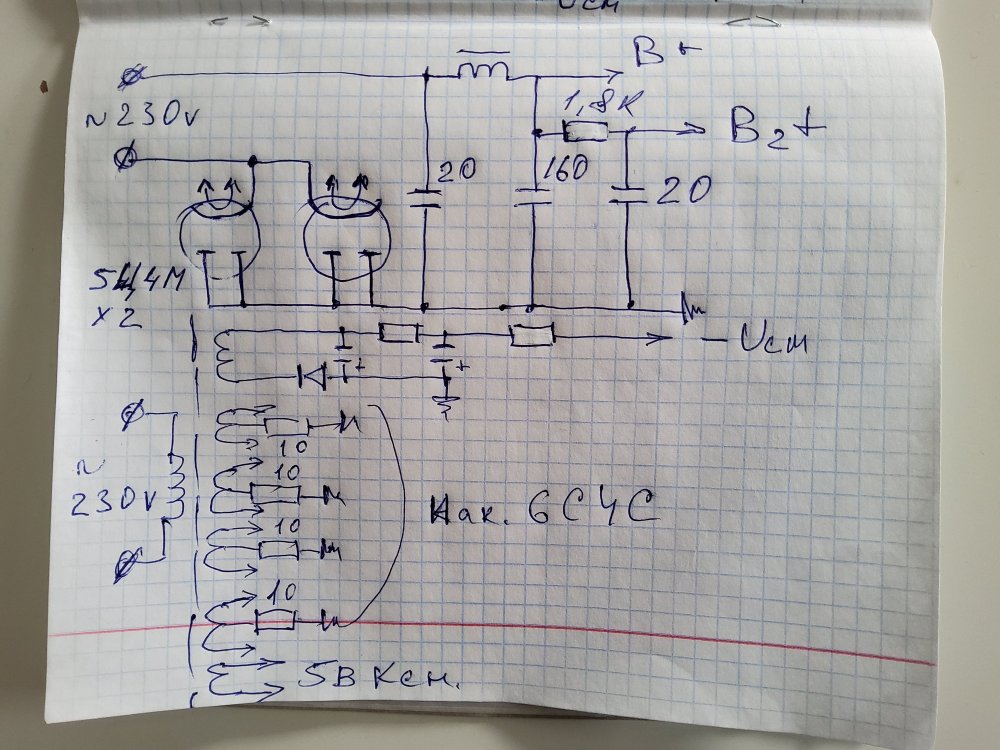 Uсм
B+
~230v
1,8K
B2+
20
160
20
5Ц4М
x2
- Uсм
+
+
10
~
230V
10
Нак. 6С4С
10
10
5В Ксн.